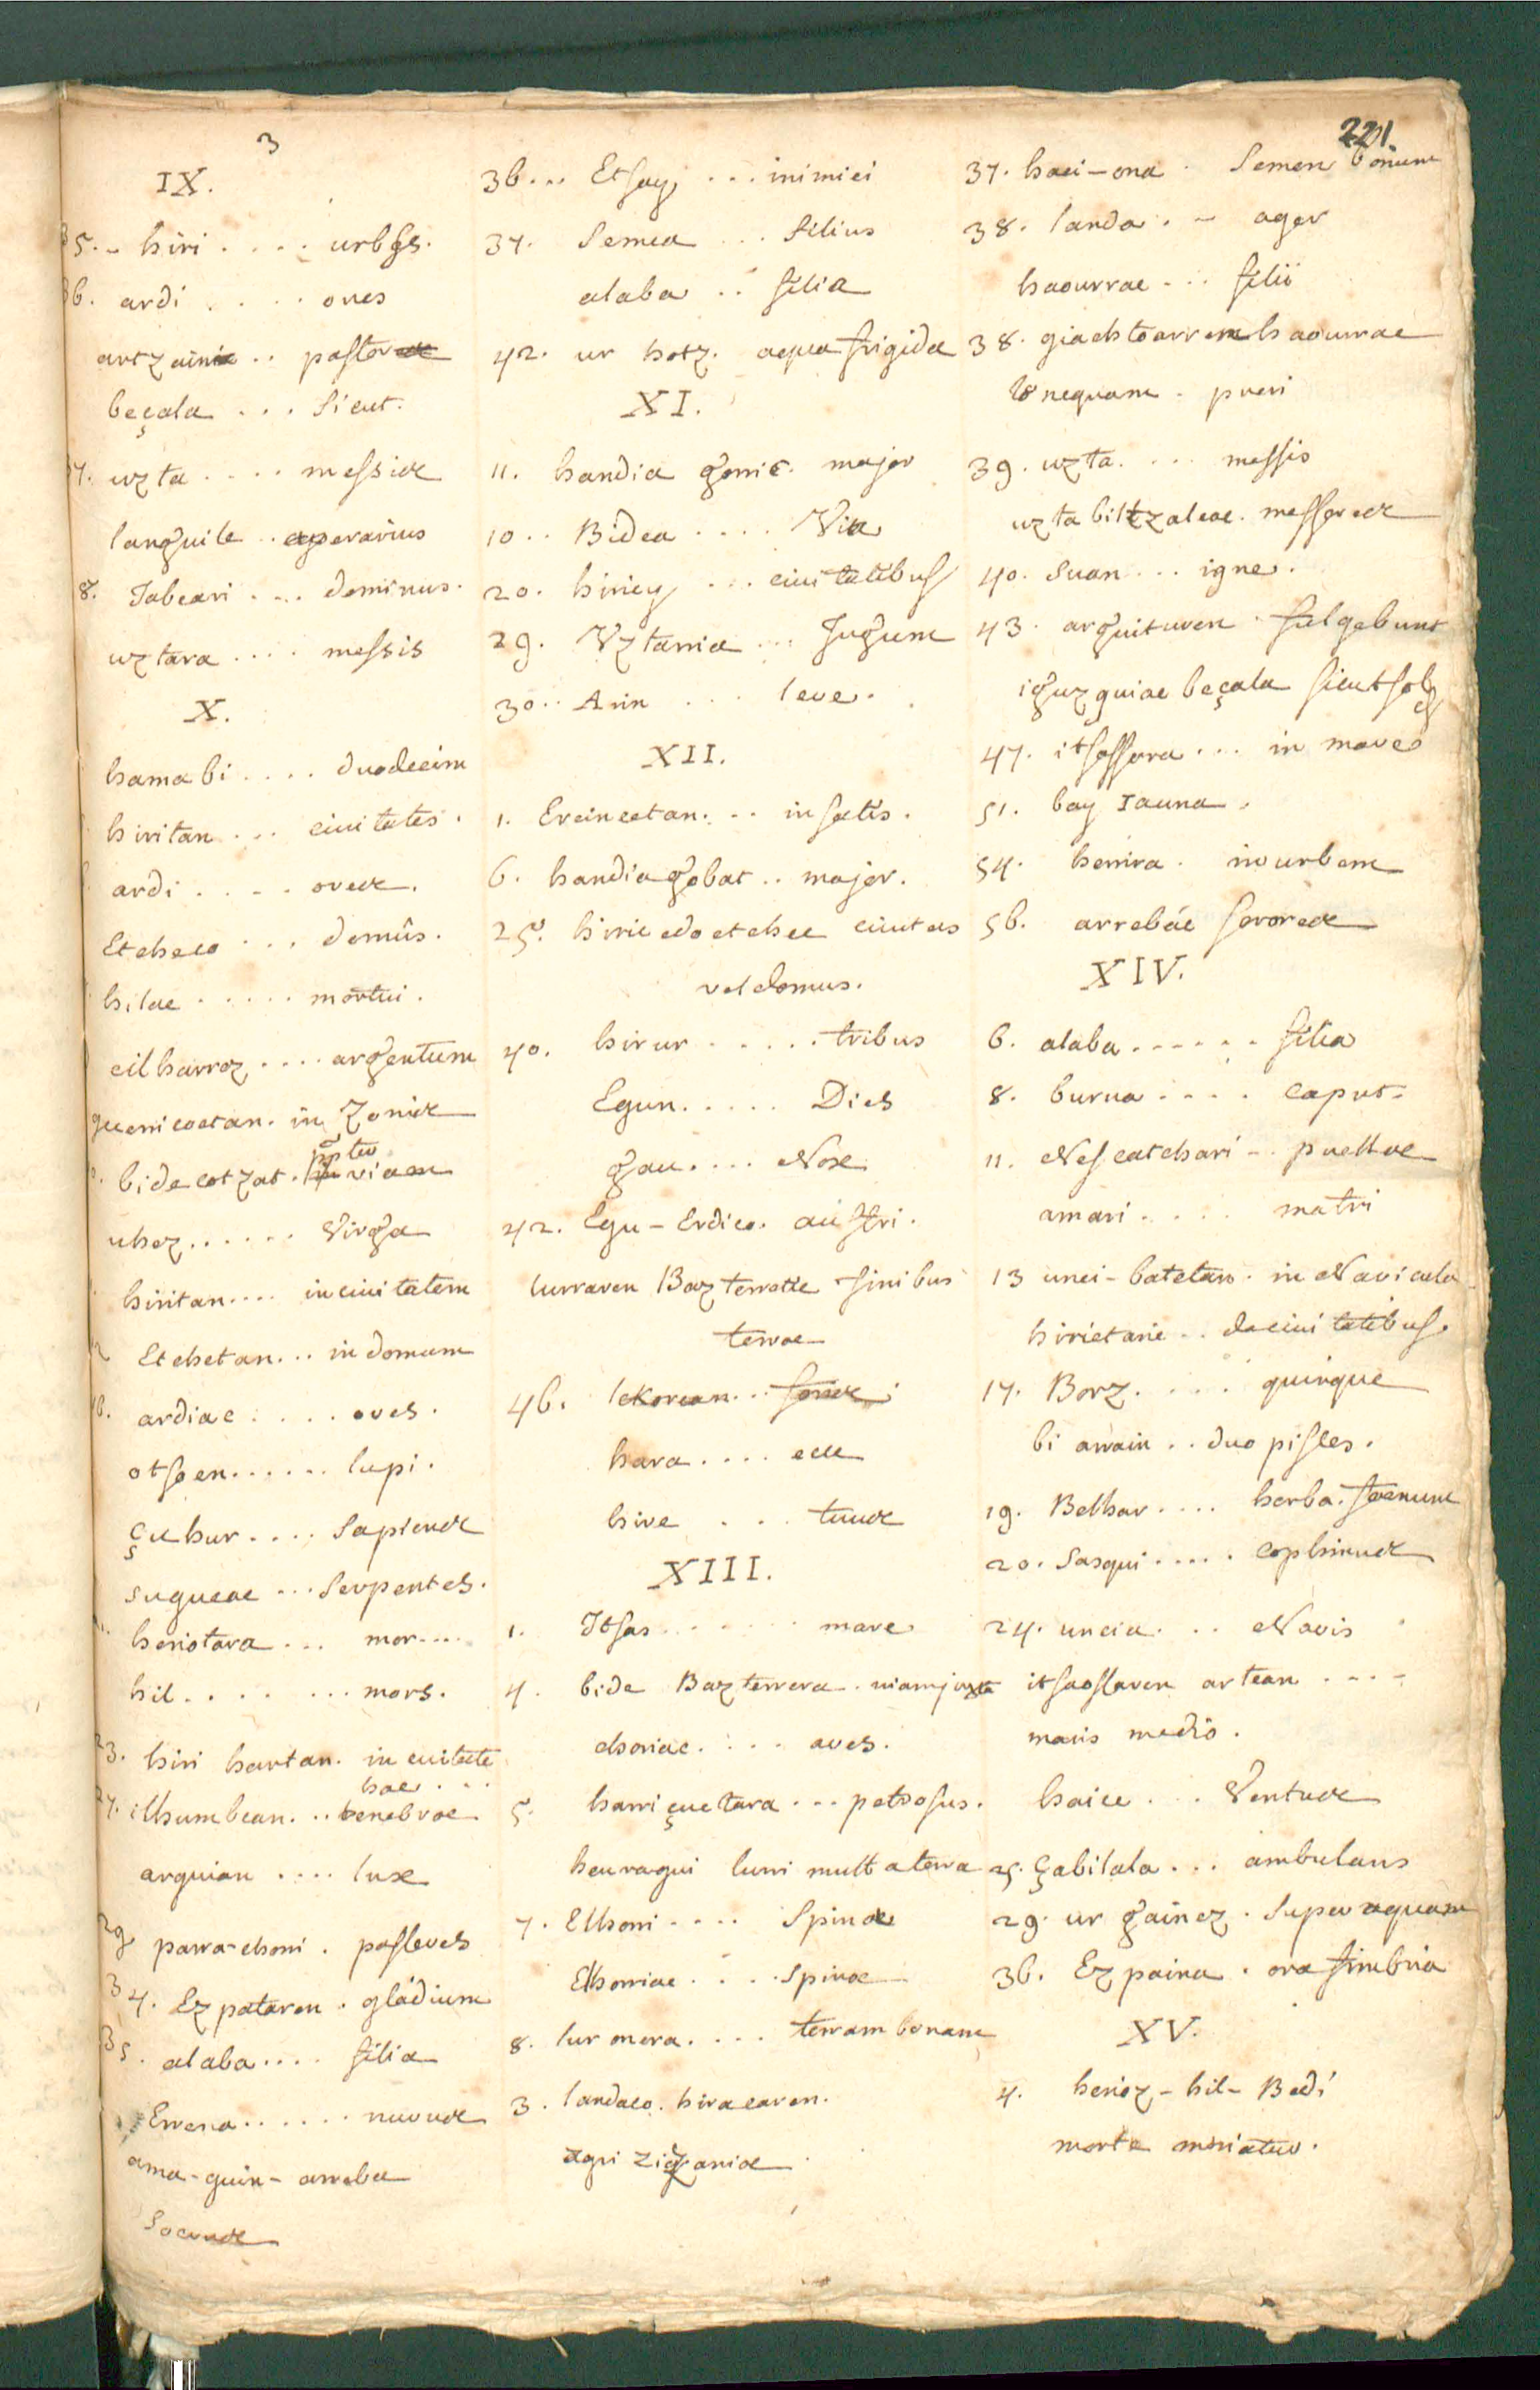 3
221.
IX.
35. - hiri .... urbs.
36. ardi .... oues
artzainic .. pastor
beçala ... sicut.
37. uzta .... messis
languile .. operarius
8. Jabeari ... dominus.
uztara .... messis
X.
hamabi .... duodecim
hiritan ... ciuitates.
ardi .... oves.
Etcheco ... domûs.
hilac ..... mortui.
cilharroz .... argentum
guerricoetan. in Zonis
bidecotzat. in viam
uhez ...... Virga
hiritan .... in ciuitatem
Etchetan ... in domum
16. ardiac .... oves.
otsoen ...... lupi.
çuhur .... Sapiens
sugueac ... Serpentes.
heriotara ... mor....
hil ........ mors.
23. hiri hartan. in ciuitate
hac ...
27. ilhumbean ... tenebrae
arguian .... lux
29 parra-choni. passeres
34. Ezpataren. gládium
35. alaba .... filia
Errena ...... nurus
ama-guin-arreba
Socrus
36 ... Etsay ... inimici
37. Semea ... filius
alaba .. filia
42. ur hotz. aqua frigida
XI.
11. handia goric. major
10 .. Bidea .... Via
20. hiriey ... ciuitatibus
29. Vztarria ... Jugum
30 .. Arin .. leue.
XII.
1. Ereincetan ... in satis.
6. handiagobat .. major.
25. hiric edo etchec ciuitas
vel domus.
40. hirur ..... tribus
Egun ..... Dies
gau .... Nox
42. Egu-Erdico. austri.
lurraren Bazterretic finibus
terrae
46. lekorean ..
hara .... ecce
hire ... tuus
XIII.
1. Itsas ...... mare
4. bide Bazterrera. viam juxta
choriac .... aves.
5. harri çuetara ... petrosus.
heuragui lurri multa terra
7. Elhorri .... Spinae
Elhorriac .... Spinae
8. lur onera .... terram bonam
3. landaco. hiracaren.
agri zizaniae
37. haci-ona. Semen bonum
38. landa . - ager
haourrac ... filii
38. giachtoarren haourrac
nequam. pueri
39. uzta .... messis
uzta biltzaleac. messores
40. Suan ... igne.
43. arguituren. fulgebunt
iguzquiac beçala sicut sol
47. itsassora ... in mare
51. bay Iauna.
54. herrira. in urbem
56. arrebác sorores
XIV.
6. alaba ...... filia
8. burua .... caput.
11. Nescatchari .. puellae
amari .... matri
13 unci-batetan. in Navicula
hirietaric .. de ciuitatibus.
17. Borz .... quinque
bi arrain .. duo pisces.
19. Belhar .... herba. foenum
20. Sasqui ..... cophinus
24. uncia ... Navis
itsasoaren artean ....
maris medio.
haice ... Ventus
25. çabilala ... ambulans
29. ur gainez. super aquam
36. Ezpaina. ora fimbria
XV.
4. herioz-hil-Bedi
morte moriatur.